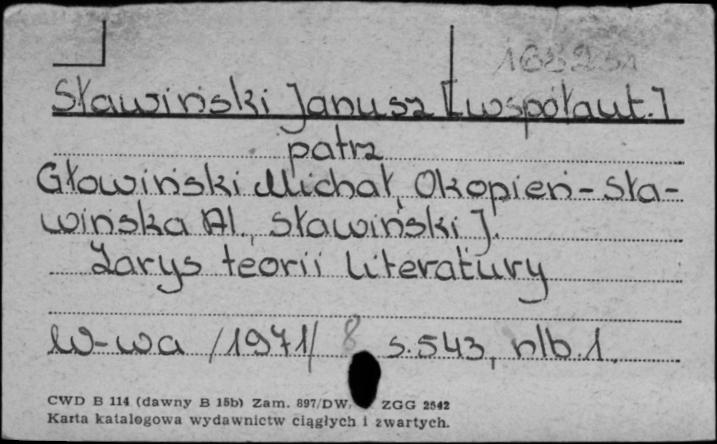 Sławiński Janusz [współaut.]
patrz
Głowiński Michał, Okopień-Sła-
wińska Al., Sławiński J.
Zarys teorii literatury
W-wa /1971/ 8 s. 543, nlb. 1.
CWD B 114 (dawny B 15b) Zam. 897/DW. ZGG 2642
Karta katalogowa wydawnictw ciągłych i zwartych.